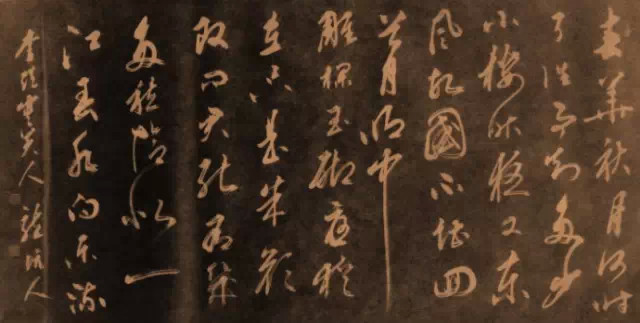 春華秋月何時
了往事知多少
小樓昨夜又東
風故國不堪回
首月明中
雕欄玉砌應猶
在只是朱顏
改問君能有幾
多愁恰似一
江春水向東流
李煜虞美人